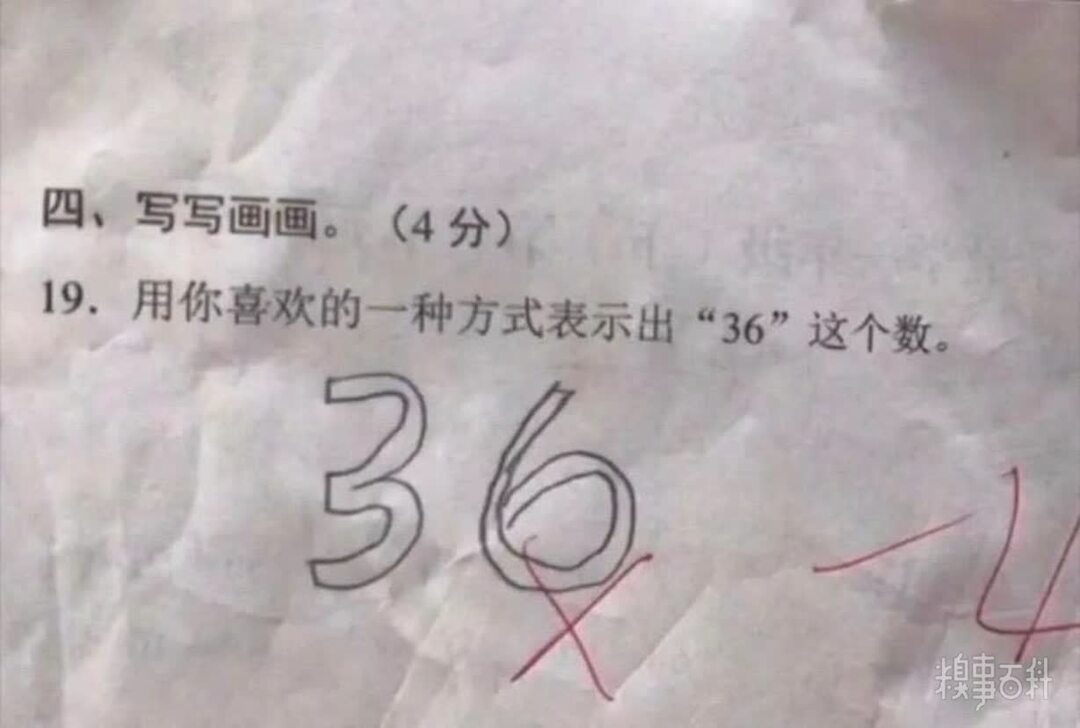 四、写写画画。（4 分）
19. 用你喜欢的一种方式表示出“36”这个数。
36
-4
糗事百科